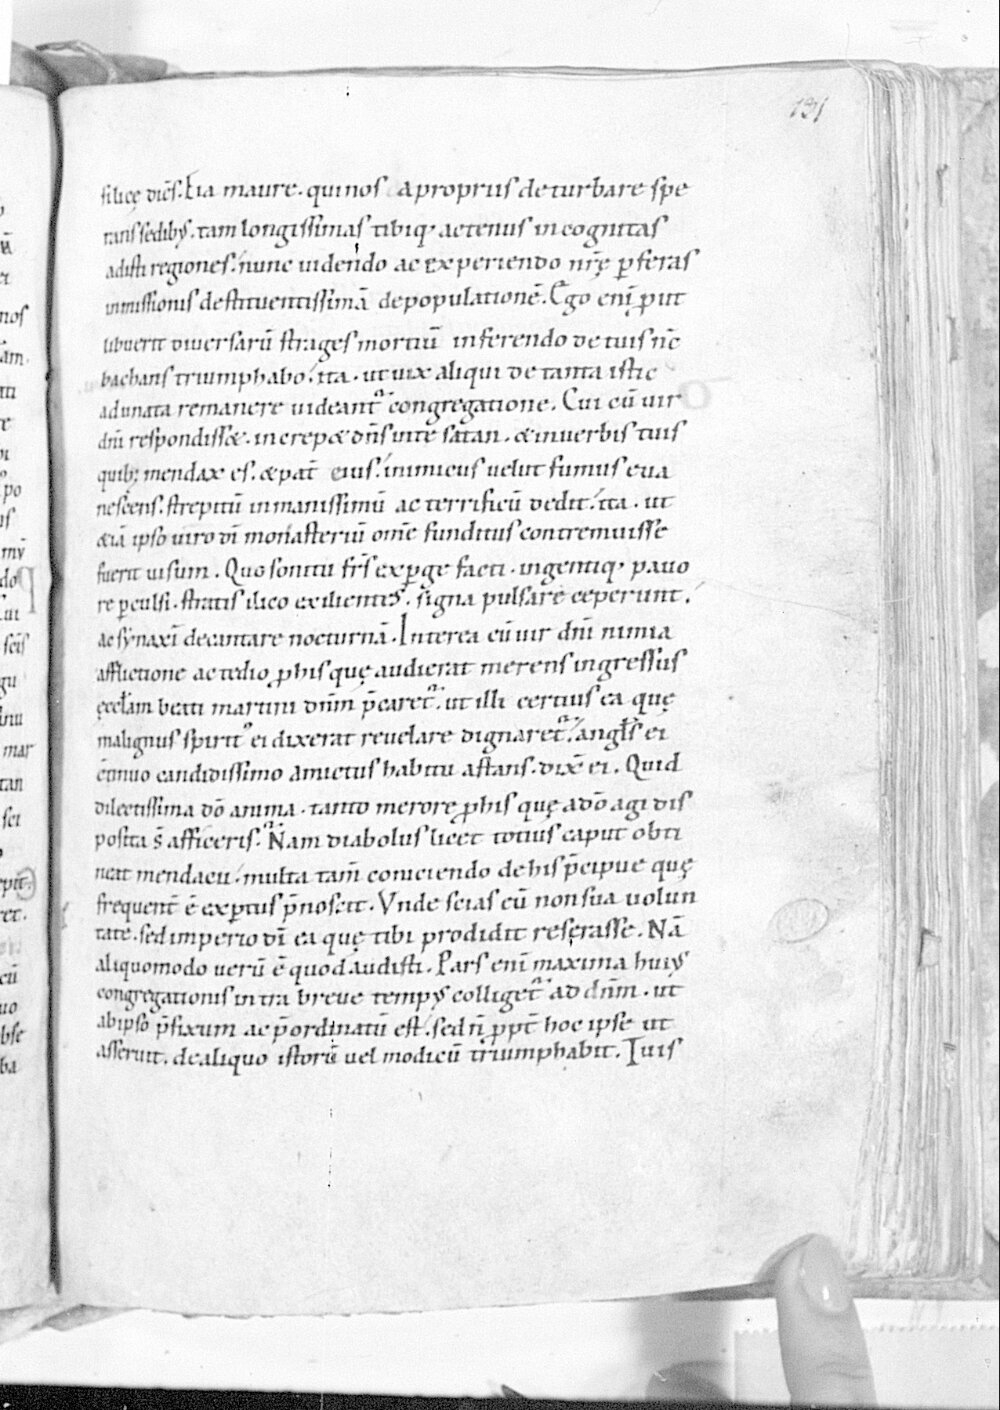 131
silicę dicēs. Eia maure. qui nos a propriis deturbare spe
rans sedibꝰ. tam longissimas tibiq; actenus incognitas
adisti regiones. nunc uidendo ac experiendo nr̄ę ꝑferas
inmissionis destituentissimā depopulationē. Ego eni ꝓut
libuerit diuersarū strages mortiū inferendo de tuis nc̄
bachans triumphabo. ita. ut uix aliqui de tanta istic
adunata remanere uideant᷑ congregatione. Cui cū uir
dn̄i respondiss&. increp& dn̄s in te satan. & in uerbis tuis
quib; mendax es. & pat̄ eius. inimicus velut fumus eua
nescens. strepitū inmanissimū ac terrificū dedit. ita. ut
&iā ipso uiro dī monasteriū om̄e funditus contremuisse
fuerit uisum. Quo sonitu frs̄ expge facti. ingentiq; pauo
re ꝑculsi. stratis ilico exilientes. signa pulsare ceperunt.
ac synaxī decantare nocturnā. Interea cū uir dn̄i nimia
afflictione ac tedio ꝓ his quę audierat merens ingressus
ęccłam beati martini dn̄m p̄caret᷑. ut illi certius ea quę
malignus spiritꝰ ei dixerat reuelare dignaret᷑. angłs ei
c̄tinuo candidissimo amictus habitu astans. dix̄ ei. Quid
dilectissima dō anima. tanto merore ꝓ his quę a dō agi dis
posita s̄ afficeris. Nam diabolus licet totius caput obti
neat mendacii. multa tam̄ coniciendo de his p̄cipue quę
frequent̄ ē exꝑtus p̄noscit. Vnde scias eū non sua uolun
tate. sed imperio dī ea quę tibi prodidit reserasse. Nā
aliquomodo uerū ē quod audisti. Pars eni maxima huiꝰ
congregationis intra breue tempꝰ colliget᷑ ad dn̄m. ut
ab ipso p̄fixum ac p̄ordinatū est. sed n̄ ꝓpt̄ hoc ipse ut
asseruit. de aliquo istorū uel modicū triumphabit. Tuis